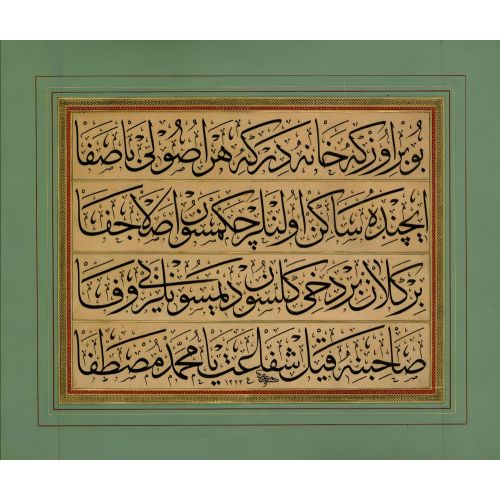 بو بر اوزكه خانه در كه هر اصولی باصفا
ایچنده ساكن اولنلر چكمسون اصلا جفا
بر كلان بر دخی كلسون دیمسونلر بی وفا
صاحبنه قیل شفاعت یا محمد مصطفا
١٢٢٣